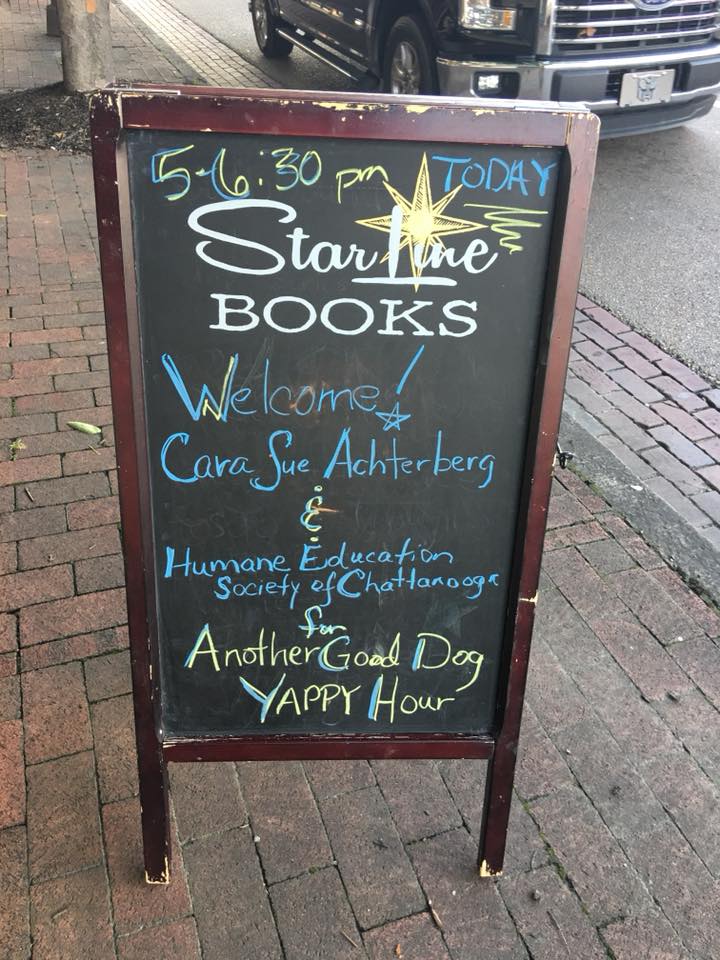 5-6:30 pm TODAY
Star Line
BOOKS
Welcome!
Cara Sue Achterberg
&
Humane Education
Society of Chattanooga
for
Another Good Dog
YAPPY Hour